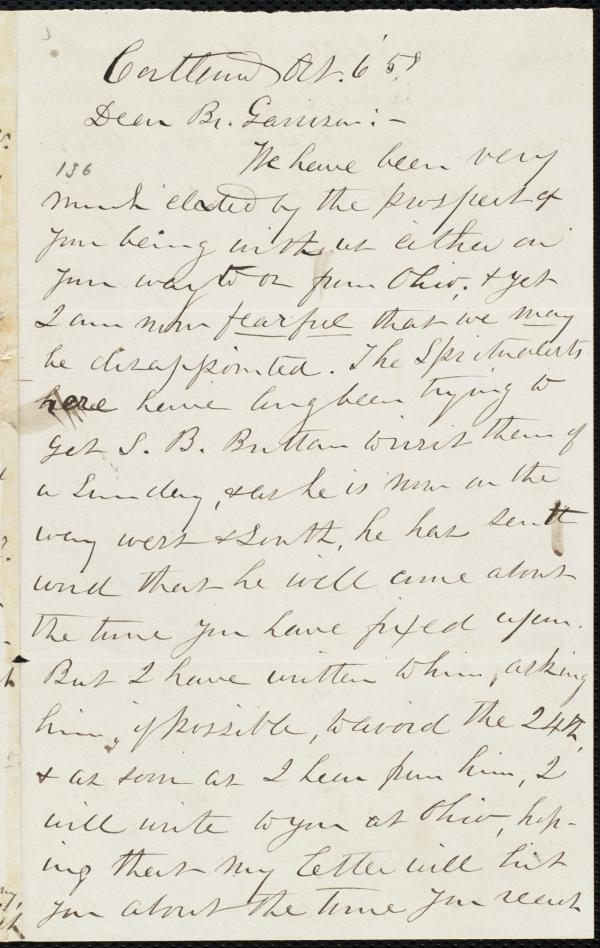 Cortland Oct. 6 '58
Dear Br. Garrison:-
136
We have been very
much elated by the prospect of
your being with us either on
your way to or from Ohio; & yet
I am now fearful that we may
be disappointed. The Spiritualists
here have long been trying to
get S. B. Brittan to visit them of
a Sunday, & as he is now on the
way west & South, he has sent
word that he will come about
the time you have fixed upon.
But I have written to him, asking
him, if possible, to avoid the 24th,
& as soon as I hear from him, I
will write to you at Ohio, hop-
ing that my letter will hit
you about the time you reach